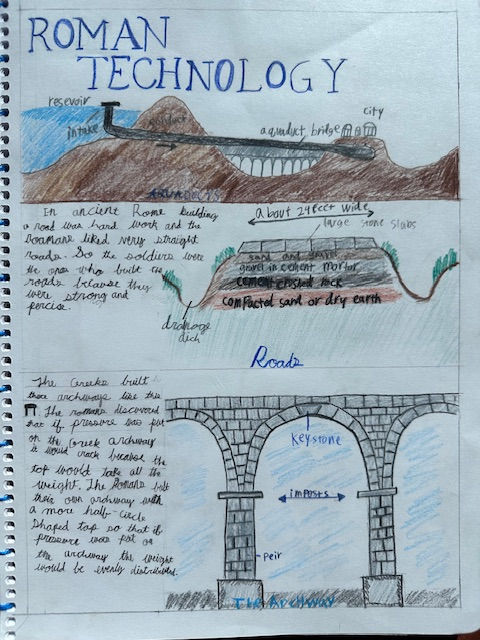 ROMAN
TECHNOLOGY
resevoir
intake
conduct
aquaduct bridge
city
AQUADUCTS
In ancient Rome building
a road was hard work and the
Roamans liked very straight
roads. So the soldiers were
the ones who built the
roads because they
were strong and
percise.
about 24 feet wide
large stone slabs
sand and gravel
gravel in cement mortor
cement crushed rock
compacted sand or dry earth
drainage
dich
Roads
The Greeks built
there archways like this
The romans discovered
that if pressure was put
on the Greek archway
it would crack because the
top would take all the
weight. The Romans built
their own archway with
a more half-circle
shaped top so that if
pressure was put on
the archway the weight
would be evenly distributed.
Keystone
imposts
peir
The Archway